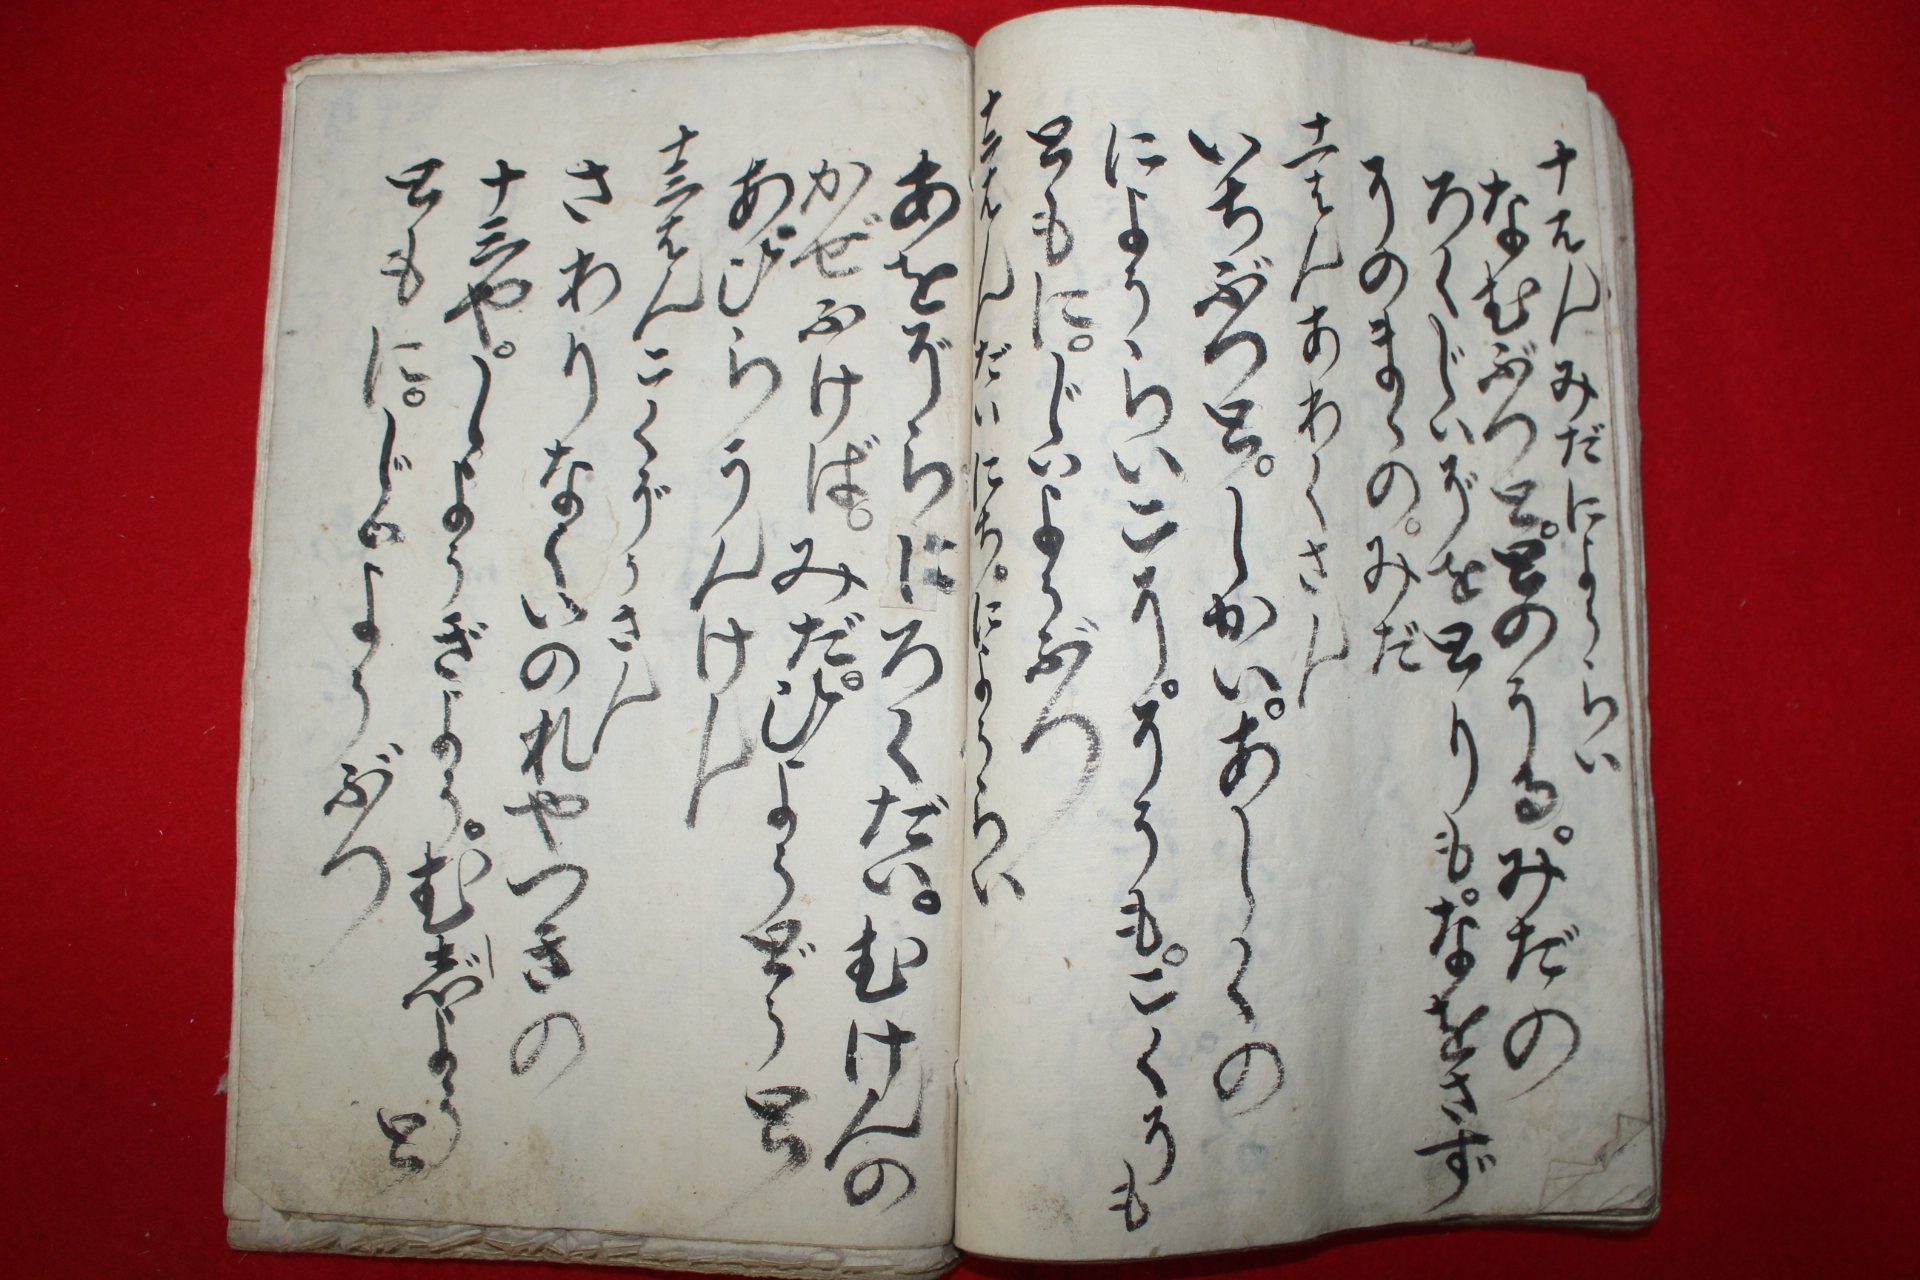 十はんみだによゝらい
なむぶつと。とのうる。みだの
ろくじいぞをとりも。なをさず
そのまゝの。みだ
十一はんあわくさん
いちぶつと。しかい。あしくの
によう、らいこそ。そうも。こくそも
ともに。じいようぶつ
十二はんだいにち。によゝらい
あをぞらにろくだい。むけんの
かぜふけば。みだ。ひようどうと
あびらうんけん
十三はんこくぞうさん
さわりなくいのれやつきの
十三や。しようぎよう。むじようと
ともに。じいようぶつ